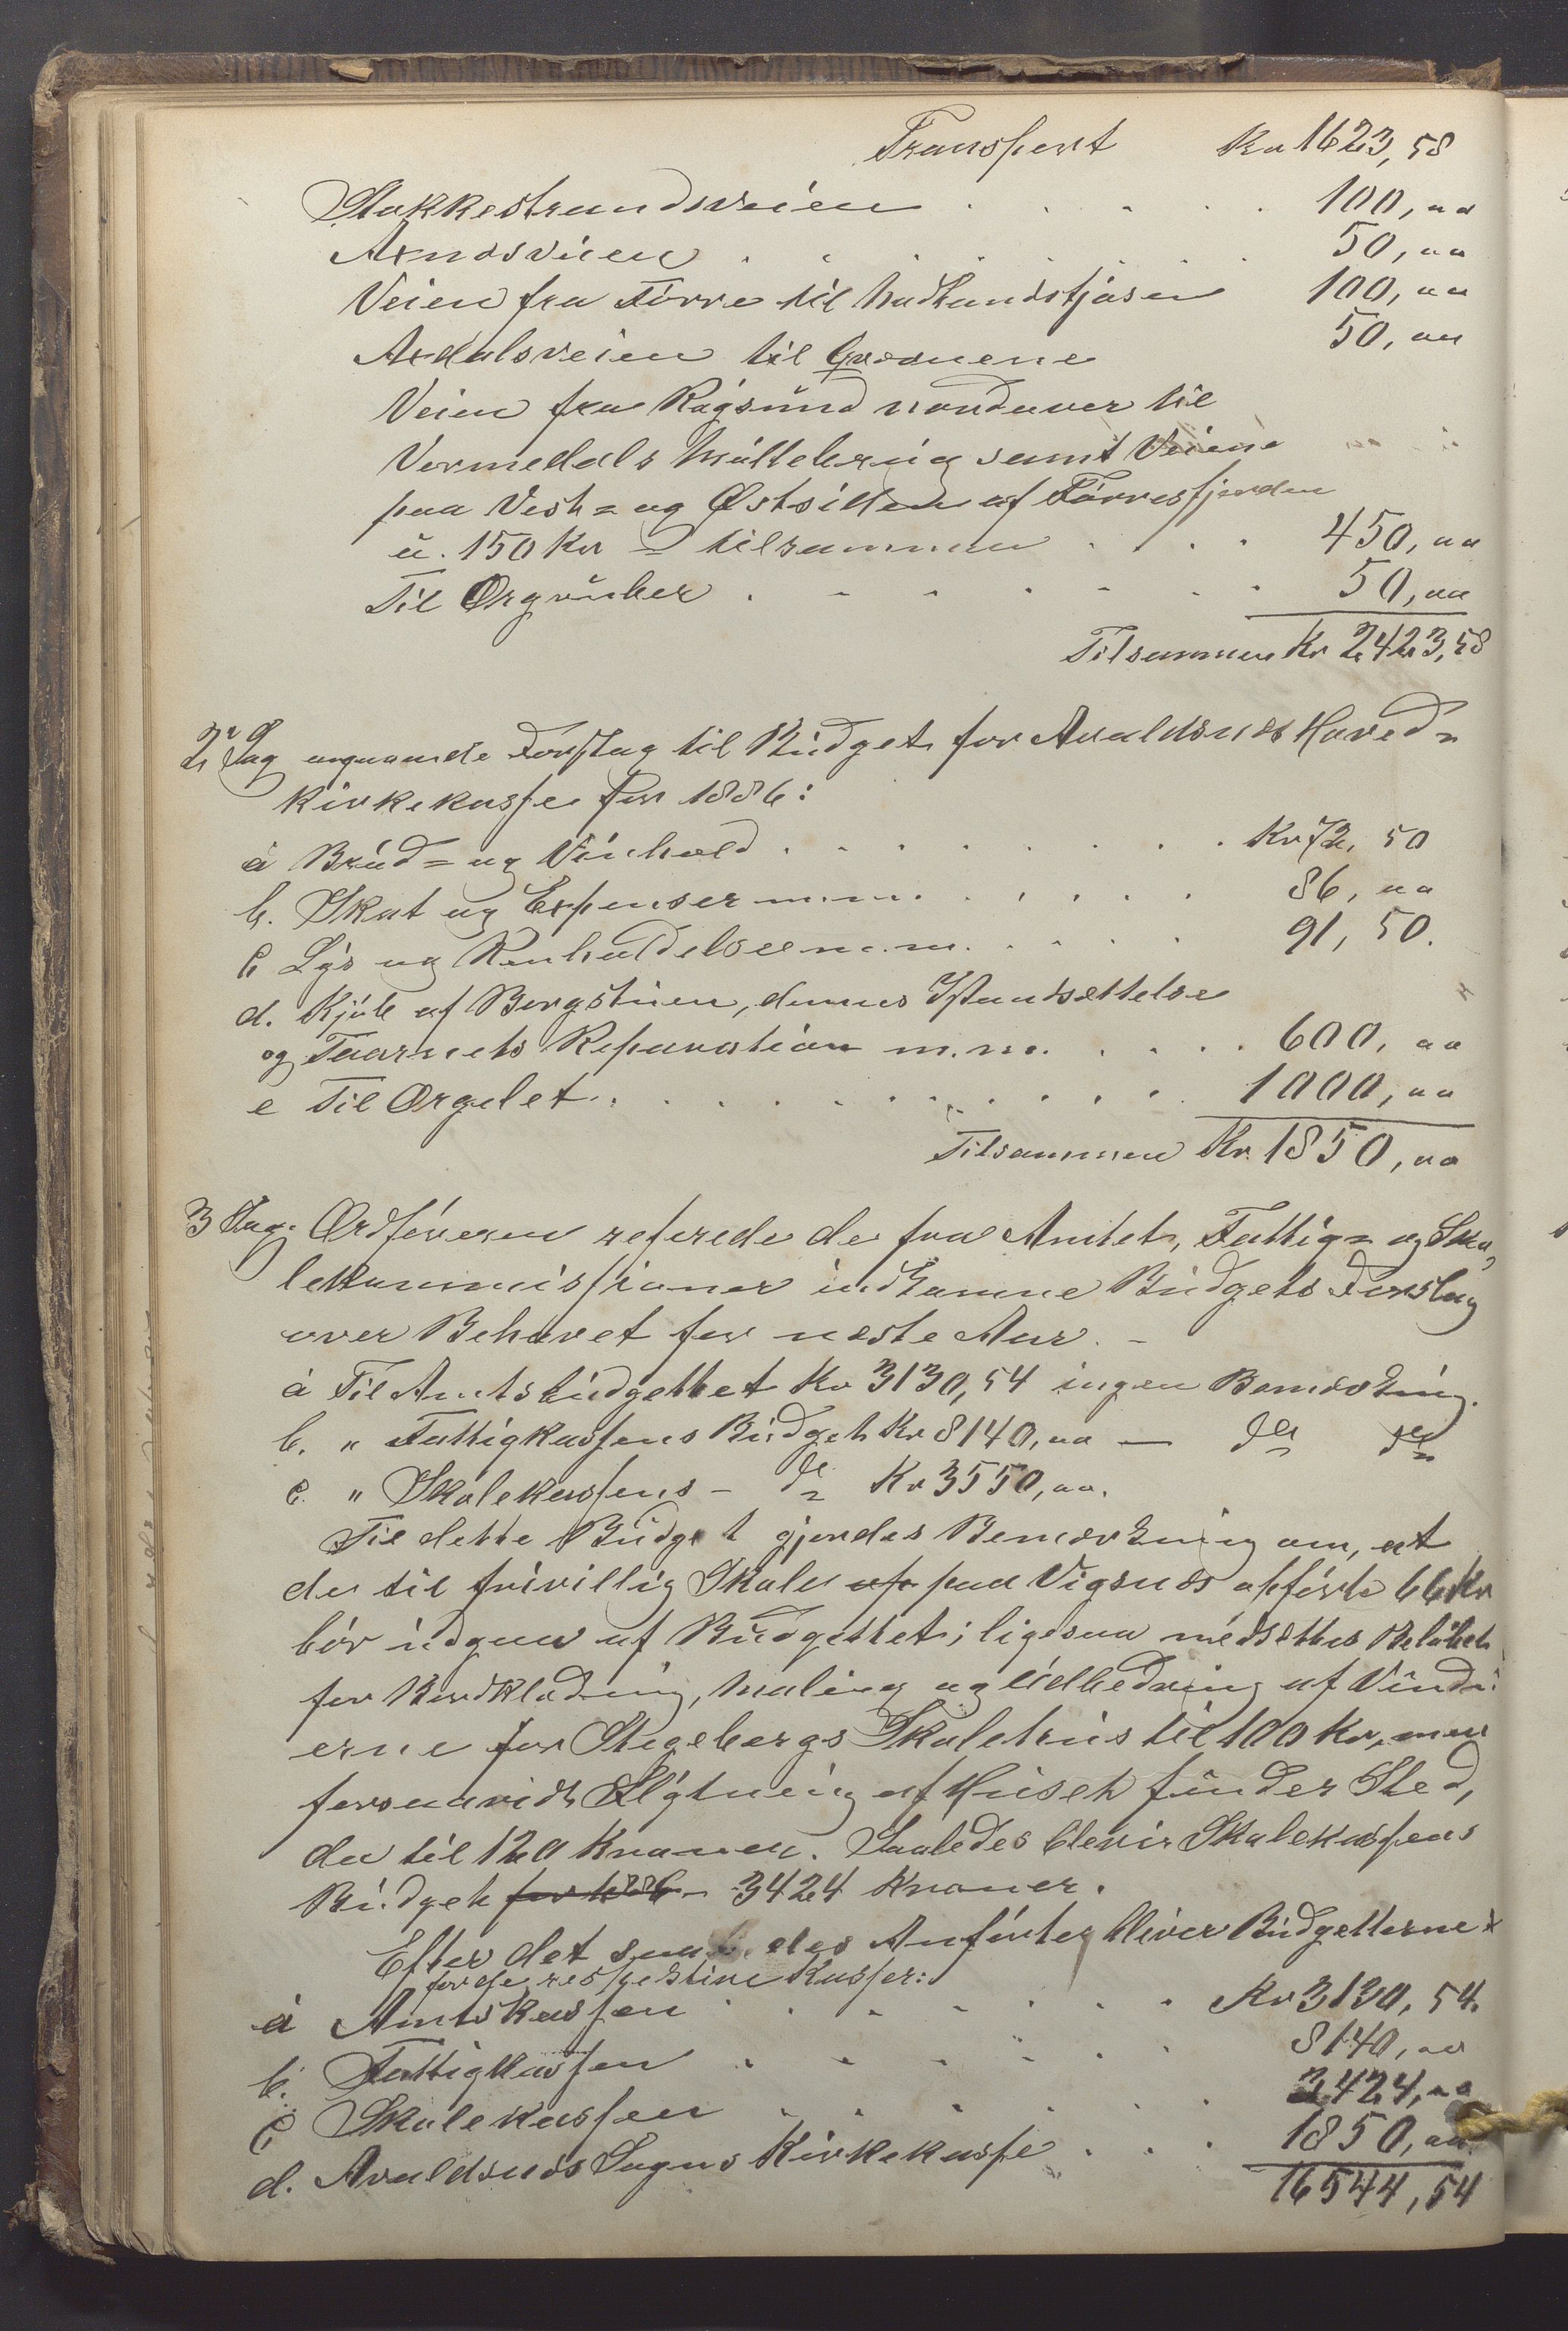 Transport Kr 1623,58
Stokkestrandsveien . . . . . 100,00
Arnøsveien . . . . . . . 50,00
Veien fra Førre til Nadlandstjøsen 100,00
Ardalsveien til Grøsnene 50,00
Veien fra Røgsund nordover til
Vormedals Mølleberg samt Veiene
paa Vest= og Østsiden af Førresfjorden
à. 150 Kr = tilsammen . . . 450,00
Til Orgruber . . . . . . . 50,00
Tilsammen Kr 2423,58
2n Sag angaaende Forslag til Budget for Avaldsnes Hoved=
kirkekasse for 1886:
a Brød= og Vinhold . . . . . . . Kr 72,50
b. Skat og Expenser m.m. . . . . . 86,00
c Lys og Renholdelse m.m. . . . . 91,50.
d. Kjøb af Borgstuen, dennes Istandsættelse
og Taarnets Reparation m.m. . . . . 600,00
e Til Orgelet . . . . . . . . . . 1000,00
Tilsammen Kr. 1850,00
3 Sag. Ordføreren referede de fra Amtet, Fattig= og Sko,
lekommissioner indkomne Budgets Forslag
over Behovet for næste Aar. -
a Til Amtsbudgettet Kr 3130,54 ingen Bemærkning.
b. " Fattigkassens Budget Kr 8140,00 — do do
c. " Skolekassens - do Kr 3550,00.
Til dette Budget gjordes Bemærkning om, at
de til frivillig Skole af paa Vigsnes opførte 66 Kr
bør udgaa af Budgettet; ligesaa nedsættes Beløbet
for Bordklædning, Maling og Udbedring af Vindu
erne for Stegebergs Skolehus til 100 Kr, men
forsaavidt Flytning af Huset finder Sted,
da til 120 Kroner. Saaledes blevir Skolekassens
Budget for 1886 - 3424 Kroner.
Efter det saaledes Anførte bliver Budgetterne
for de respektive Kasser:
a Amtskassen . . . . . . Kr 3130,54.
b. Fattigkassen . . . . . . 8140,00
c Skolekassen . . . . . . 3424,00
d. Avaldsnes Sogns Kirkekasse . . . 1850,00
16544,54